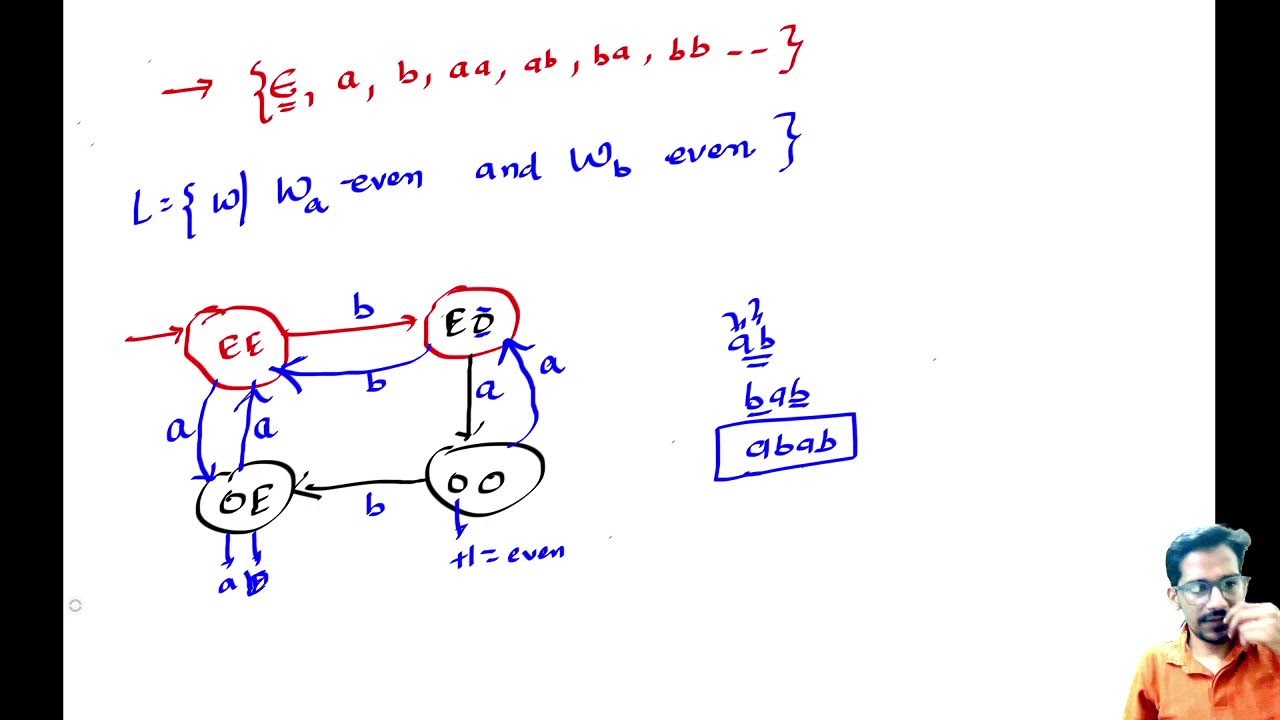 → {ϵ, a, b, aa, ab, ba, bb --}
L={ w| Wa -even and Wb even }
b
EE
EO
b
a
a
a
a
OE
OO
b
+1=even
a b
ab
bab
abab